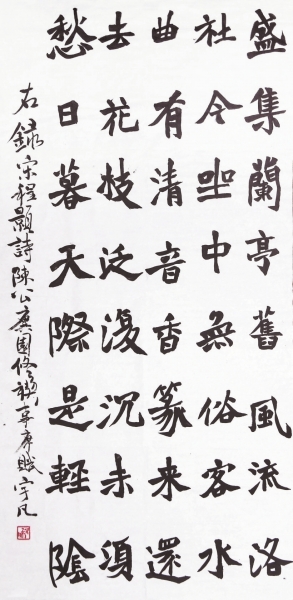 盛集蘭亭舊風流洛
社今㘴中無俗客水
曲有清音香篆来還
去花枝泛復沉未須
愁日暮天際是輕陰
右錄宋程顥詩陳公廙園修禊事席賦宇凡